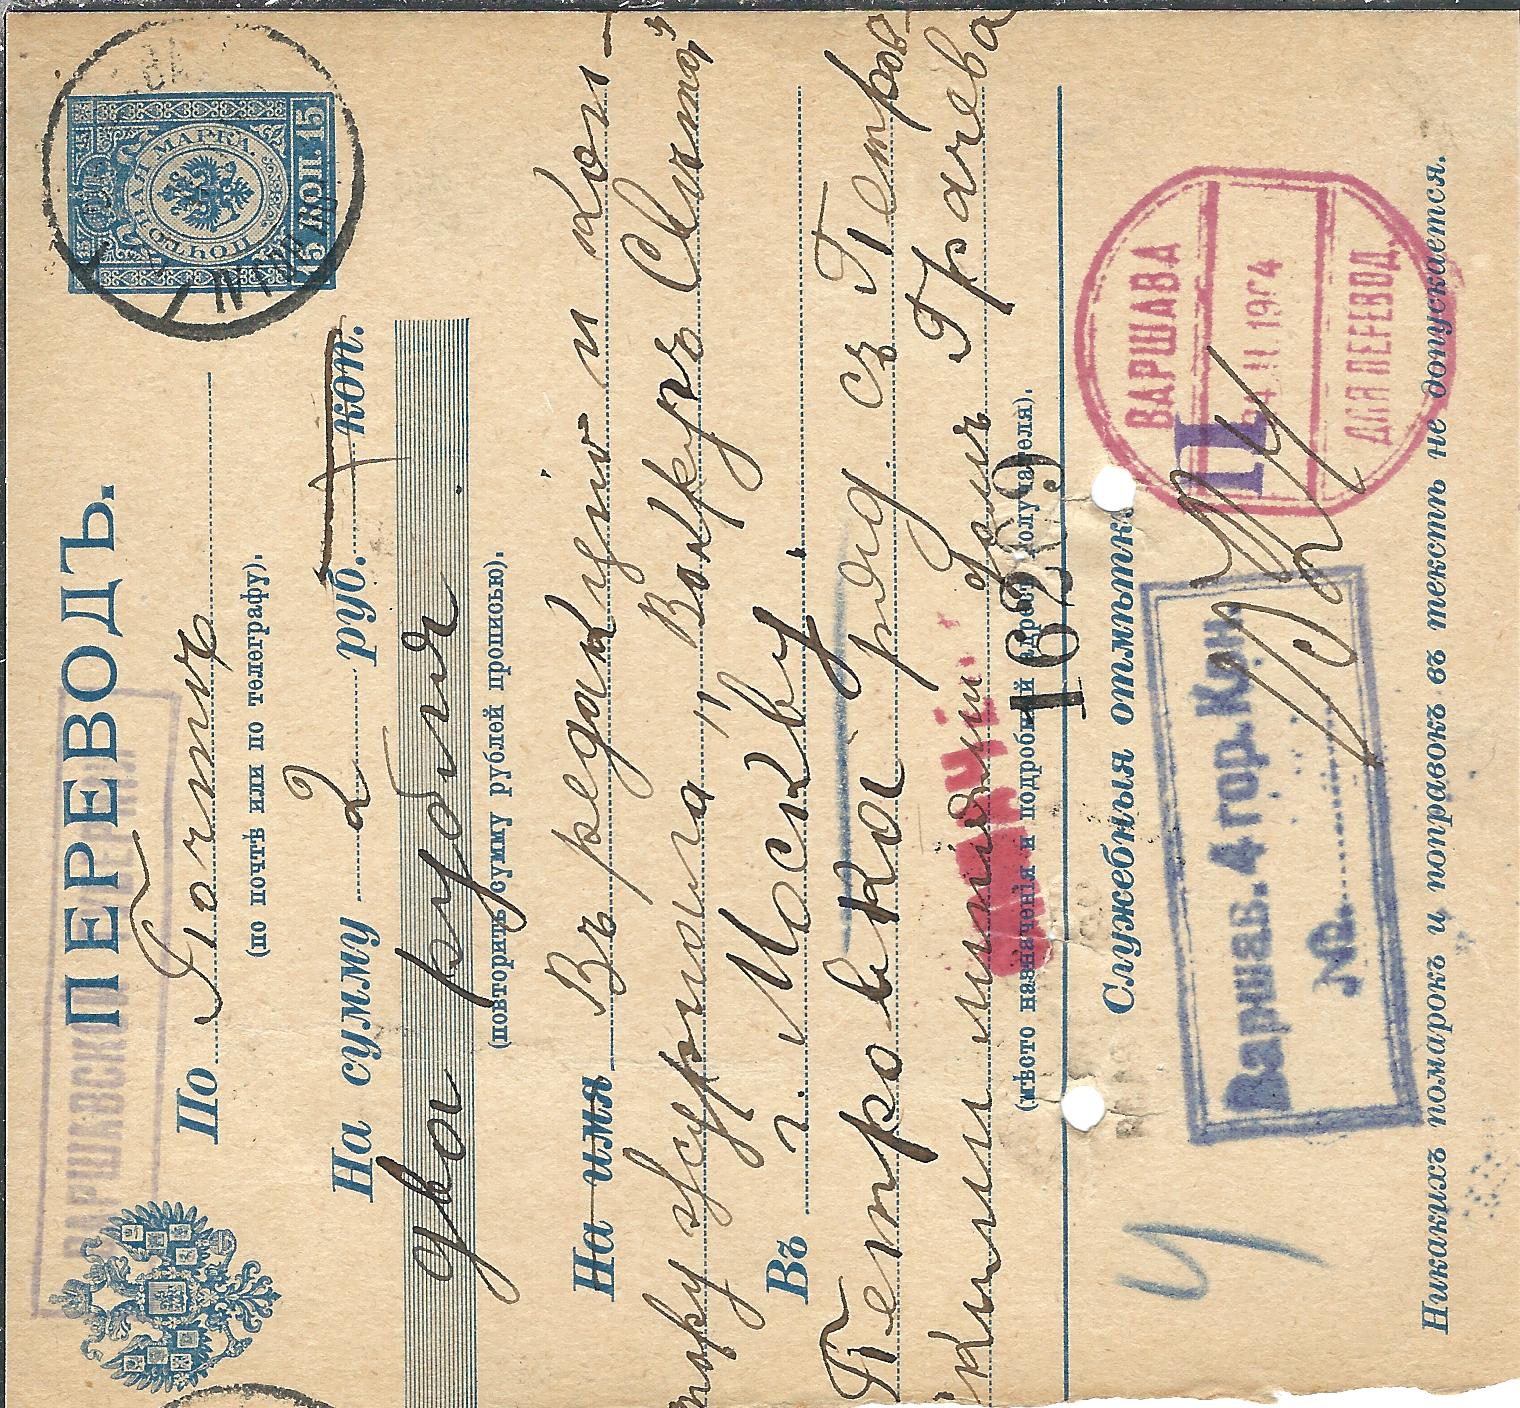 ПЕРЕВОДЪ.
ПОЧТОВАЯ МАРКА.
15 КОП. 15
По Почтѣ
(по почтѣ или по телеграфу).
На сумму 2 руб. — коп.
два рубля
(повторить сумму рублей прописью).
На имя Въ редакцію и кон-
тору журнала "Вокругъ Свѣта"
Въ г. Москву.
Петровка ряд. съ Петров
скими линіями домъ Грачева
(мѣсто назначенія и подробный адресъ получателя).
1629
Служебныя отмѣтки
ВАРШАВА
24.II.1904
ДЛЯ ПЕРЕВОД.
II
Варшав. 4 гор. Кон.
№
Никакихъ помарокъ и поправокъ въ текстѣ не допускается.